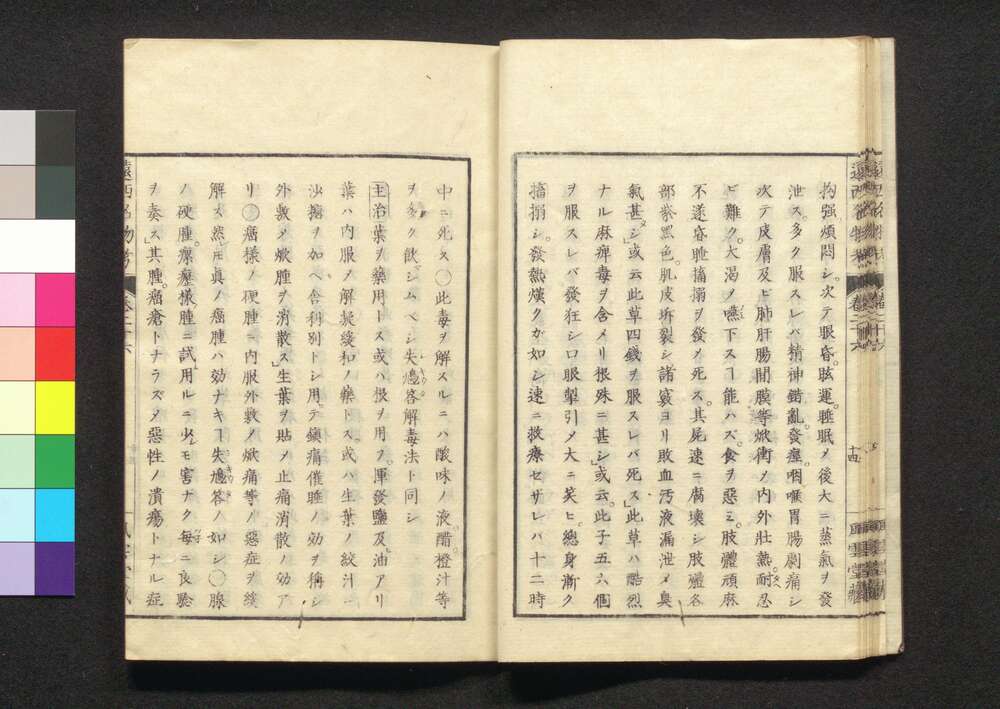 拘强煩悶シ。次テ眼昏。眩運。睡眠メ後大ニ蒸氣ヲ發
泄ス。多ク服スレバ精神錯亂。發瘂。咽喉胃腸劇痛シ
次テ皮膚及ヒ肺肝腸間膜等焮衝メ内外壯熱。耐忍
ヒ難ク。大渇メ嚥下スルヿ能ハズ。食ヲ惡ミ。肢體頑麻
不遂昏睡搐搦ヲ發メ死ス。其屍速ニ腐壞シ肢體各
部紫黑色。肌皮坼裂シ諸竅ヨリ敗血汚液漏泄メ臭
氣甚シ」或云此草四錢ヲ服スレバ死ス」此草ハ酷烈
ナル麻痺毒ヲ含メリ根殊ニ甚シ」或云。此子五六個
ヲ服スレバ發狂シ口眼牽引メ大ニ笑ヒ。總身漸ク
搐搦シ。發熱熯クガ如シ速ニ救療セザレバ十二時
中ニ死ス◯此毒ヲ解スルニハ酸味ノ液。醋橙汁等
ヲ多ク飲シムベシ失鳩答解毒法ト同シ
主治葉ヲ藥用トス或ハ根ヲ用フ。揮發鹽及油アリ
葉ハ内服メ解凝緩和ノ藥トス。或ハ生葉ノ絞汁ニ
沙糖ヲ加ヘ舎利別トシ用テ鎭痛催睡ノ効ヲ稱シ
外敷メ焮腫ヲ消散ス」生葉ヲ貼メ止痛消散ノ効ア
リ◯癌樣ノ硬腫ニ内服外敷メ焮痛等ノ惡症ヲ緩
解ス然㪽眞ノ癌腫ハ効ナキヿ失鳩答ノ如シ◯腺
ノ硬腫。瘰癧樣腫ニ試用ルニ少モ害ナク毎ニ良驗
ヲ奏ス」其腫。癌瘡トナラズメ惡性ノ潰瘍トナル症
遠西名物考
十四
風雲堂藏